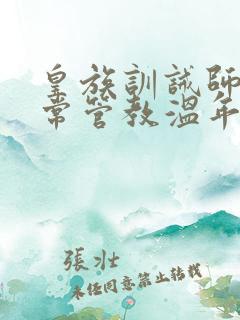 皇族訓誡師
常管教溫年
張壯
未經同意禁止轉載